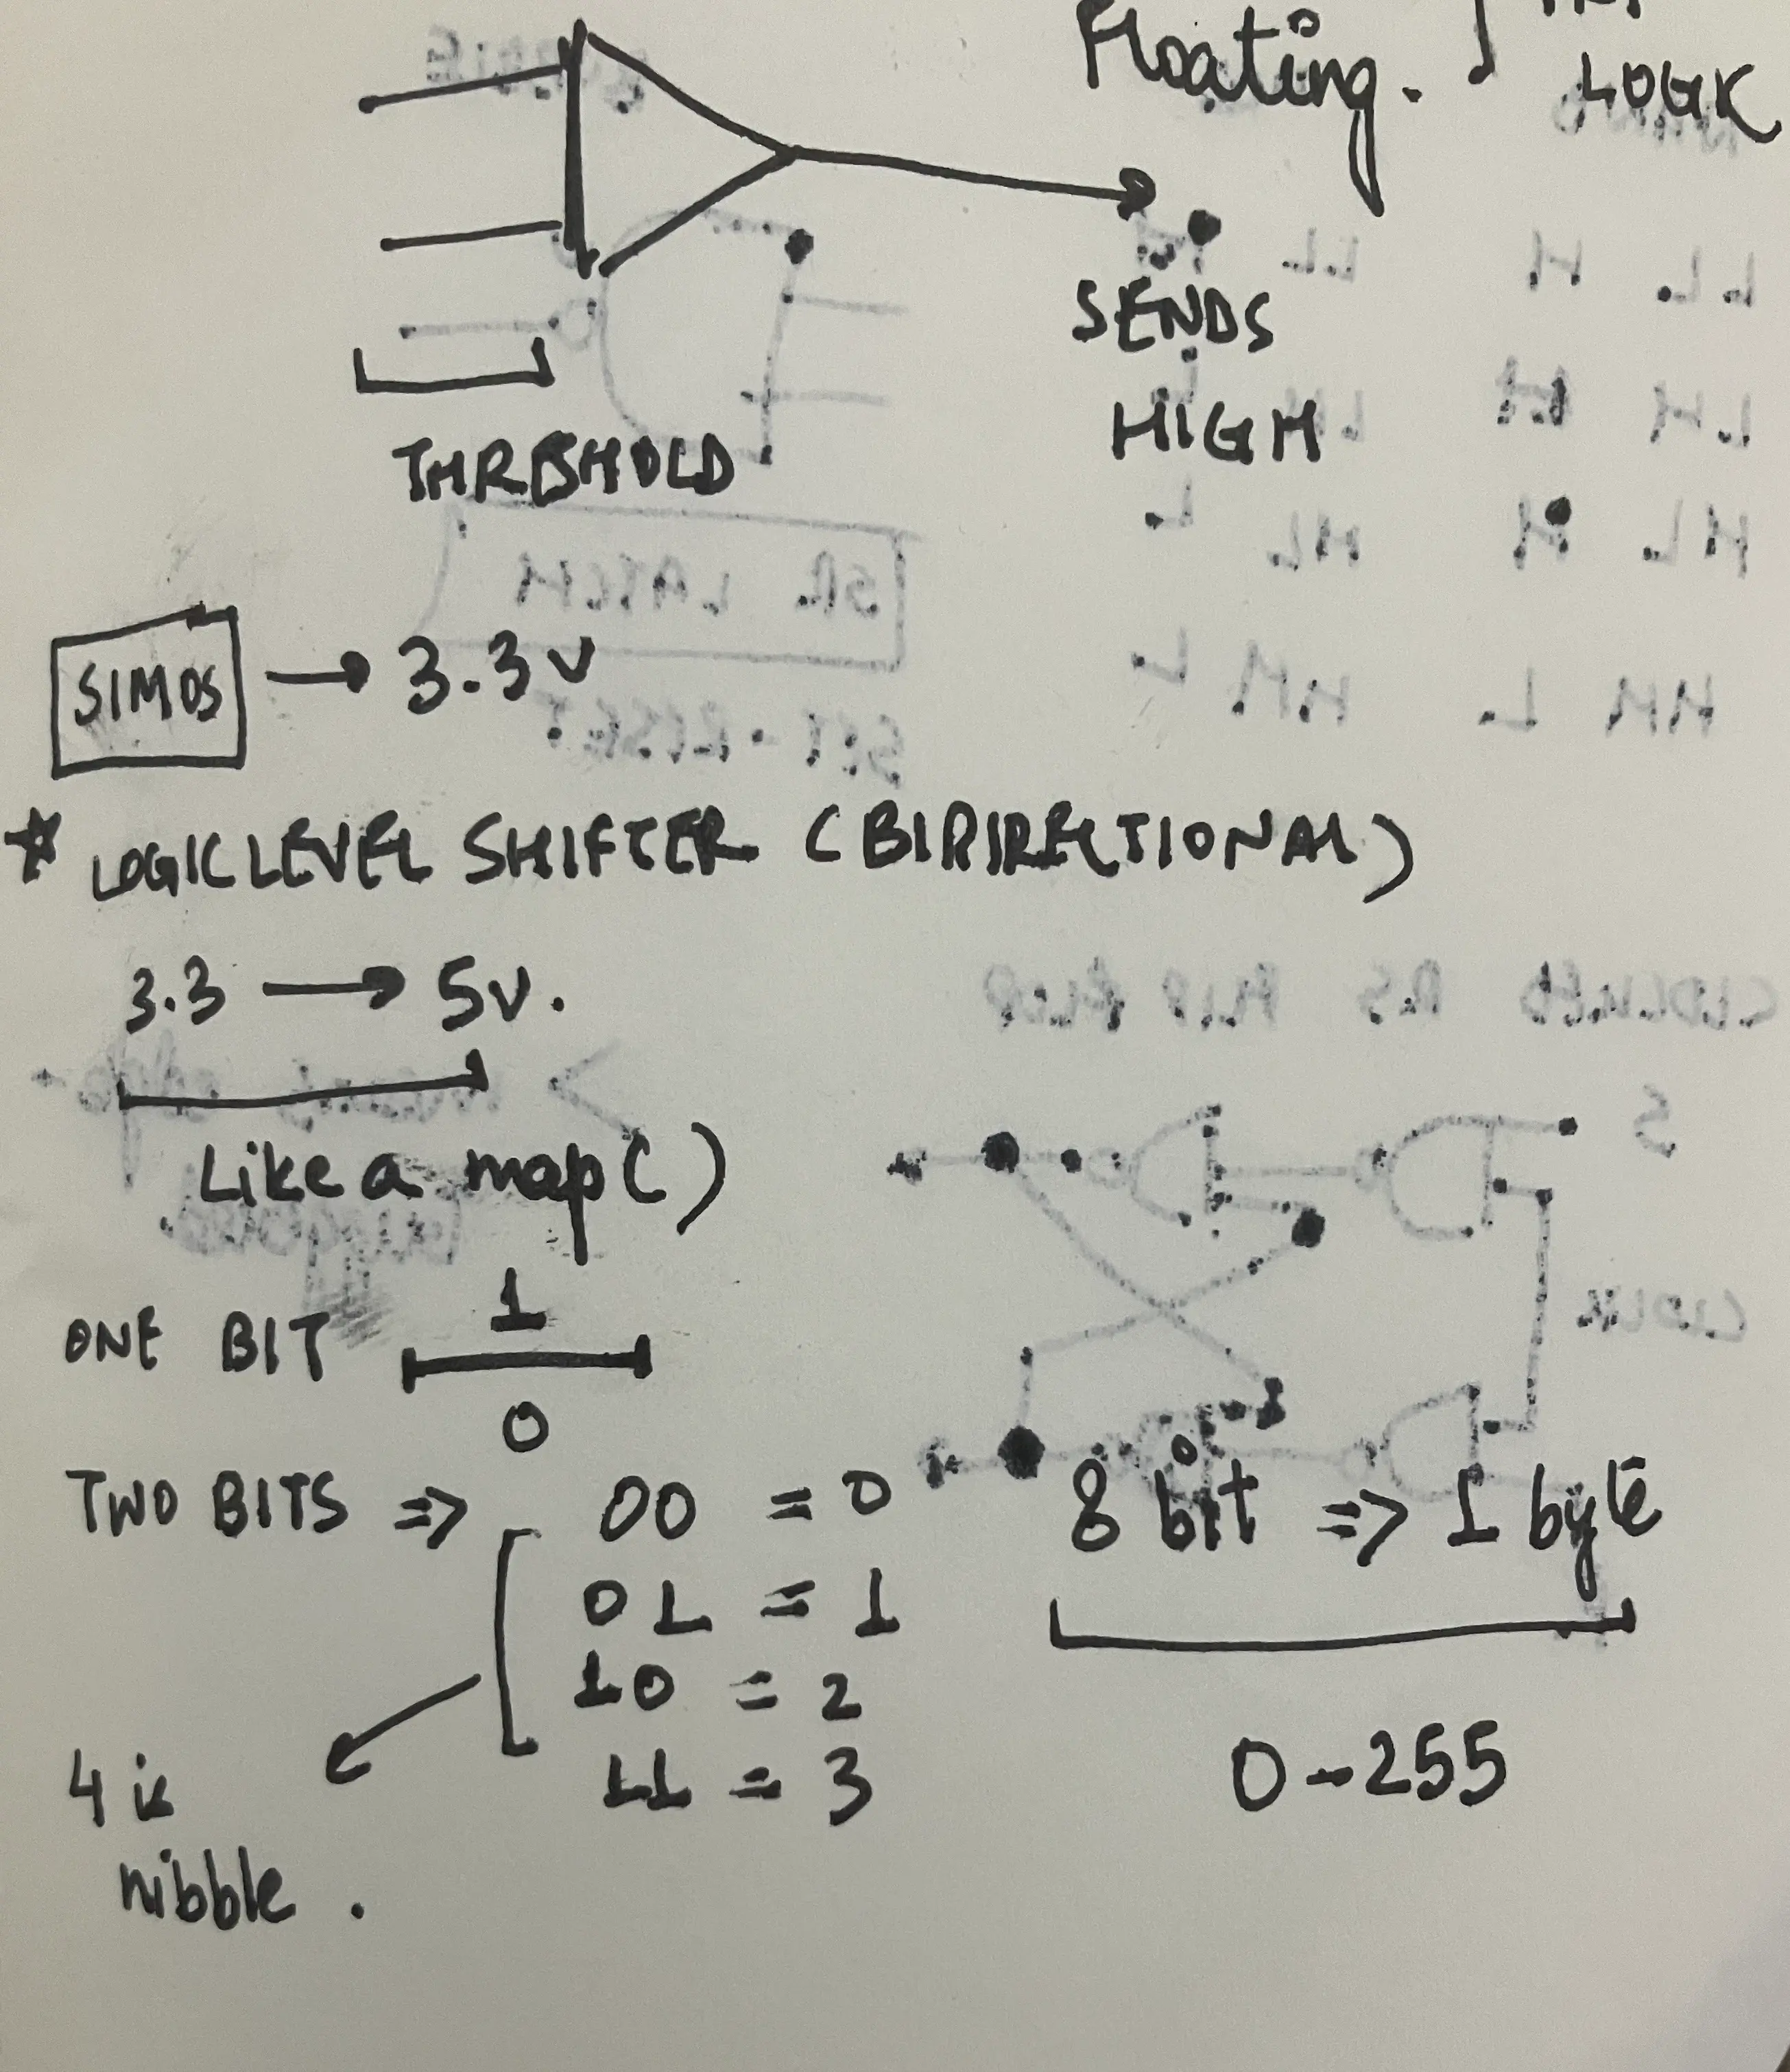 Floating.
LOGIC
SENDS
HIGH
THRESHOLD
SIMOS → 3.3V
* LOGIC LEVEL SHIFTER (BIDIRECTIONAL)
3.3 → 5V.
Like a map()
ONE BIT 1
0
TWO BITS => 00 = 0
01 = 1
10 = 2
11 = 3
4 is
nibble.
8 bit => 1 byte
0-255